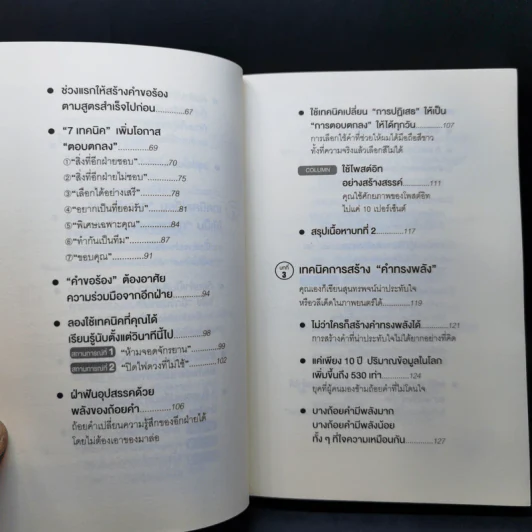 ● ช่วงแรกให้สร้างคำขอร้อง
ตามสูตรสำเร็จไปก่อน.............67
● “7 เทคนิค” เพิ่มโอกาส
“ตอบตกลง”...............69
①“สิ่งที่อีกฝ่ายชอบ”............70
②“สิ่งที่อีกฝ่ายไม่ชอบ”............75
③“เลือกได้อย่างเสรี”............78
④“อยากเป็นที่ยอมรับ”............81
⑤“พิเศษเฉพาะคุณ”............84
⑥“ทำกันเป็นทีม”............87
⑦“ขอบคุณ”............91
● “คำขอร้อง” ต้องอาศัย
ความร่วมมือจากอีกฝ่าย............94
● ลองใช้เทคนิคที่คุณได้
เรียนรู้นับตั้งแต่วินาทีนี้ไป............98
สถานการณ์ที่ 1 “ห้ามจอดจักรยาน”............99
สถานการณ์ที่ 2 “ปิดไฟดวงที่ไม่ใช้”............102
● ฝ่าฟันอุปสรรคด้วย
พลังของถ้อยคำ............106
ถ้อยคำเปลี่ยนความรู้สึกของอีกฝ่ายได้
โดยไม่ต้องเอาของมาล่อ
● ใช้เทคนิคเปลี่ยน “การปฏิเสธ” ให้เป็น
“การตอบตกลง” ให้ได้ทุกวัน............107
การเลือกใช้คำที่ช่วยให้ผมได้มือถือสีขาว
ทั้งที่ความจริงแล้วเลือกสีไม่ได้
COLUMN ใช้โพสต์อิท
อย่างสร้างสรรค์............111
คุณใช้ศักยภาพของโพสต์อิท
ไปแค่ 10 เปอร์เซ็นต์
● สรุปเนื้อหาบทที่ 2............117
บทที่ 3 เทคนิคการสร้าง “คำทรงพลัง”
คุณเองก็เขียนสุนทรพจน์น่าประทับใจ
หรือวลีเด็ดในภาพยนตร์ได้............119
● ไม่ว่าใครก็สร้างคำทรงพลังได้............121
การสร้างคำที่น่าประทับใจไม่ได้ยากอย่างที่คิด
● แค่เพียง 10 ปี ปริมาณข้อมูลในโลก
เพิ่มขึ้นถึง 530 เท่า............124
ยุคที่ผู้คนมองข้ามถ้อยคำที่ไม่โดนใจ
● บางถ้อยคำมีพลังมาก
บางถ้อยคำมีพลังน้อย
ทั้ง ๆ ที่ใจความเหมือนกัน............127